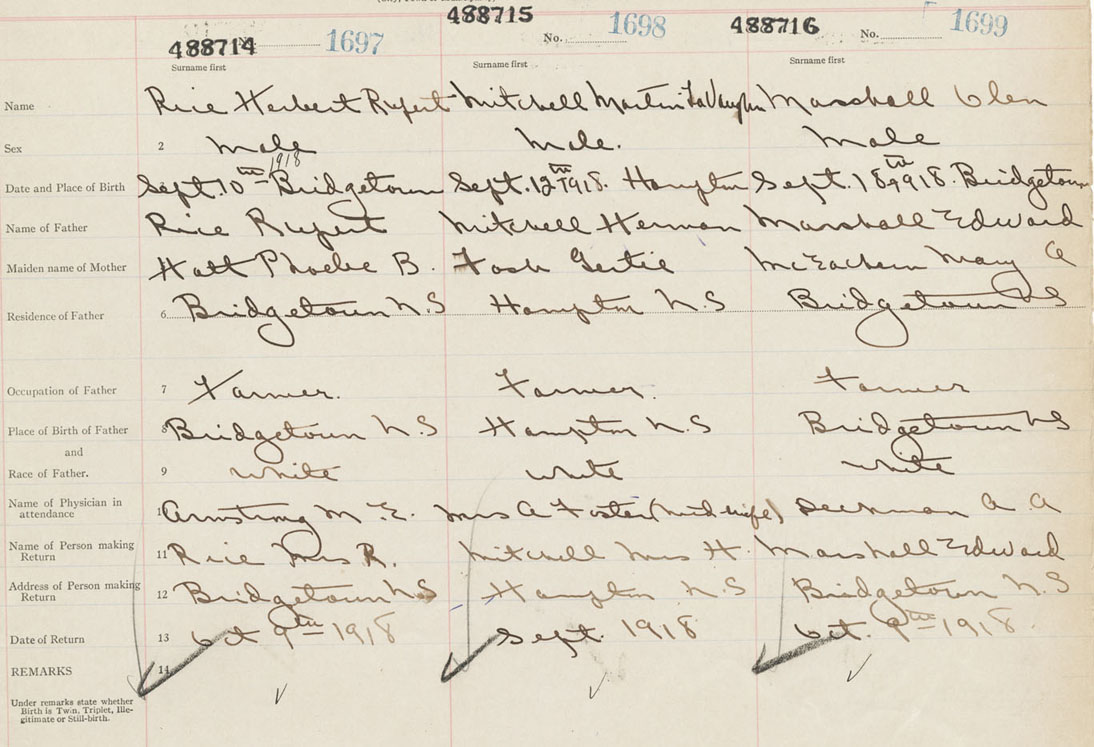 488714 No. 1697 488715 No. 1698 488716 No. 1699
Surname first Surname first Surname first
Name Rice Herbert Rupert Mitchell Martin LaVaughn Marshall Glen
Sex 2 Male Male. Male
Date and Place of Birth Sept. 10th 1918 Bridgetown Sept. 12th 1918. Hampton Sept. 18th 1918. Bridgetown
Name of Father Rice Rupert Mitchell Herman Marshall Edward
Maiden name of Mother Hatt Phoebe B. Fosh Gertie McEachern Mary A
Residence of Father 6 Bridgetown N.S Hampton N.S Bridgetown NS
Occupation of Father 7 Farmer. Farmer. Farmer
Place of Birth of Father 8 Bridgetown N.S Hampton N.S Bridgetown NS
and
Race of Father. 9 White White White
Name of Physician in attendance 1 Armstrong M. E. Mrs A Foster (Midwife) Deckman A A
Name of Person making Return 11 Rice Mrs R. Mitchell Mrs H. Marshall Edward
Address of Person making Return 12 Bridgetown N.S Hampton N.S Bridgetown N.S
Date of Return 13 Oct 9th 1918 Sept. 1918 Oct. 9th 1918.
REMARKS 14
Under remarks state whether
Birth is Twin, Triplet, Ille-
gitimate or Still-birth.